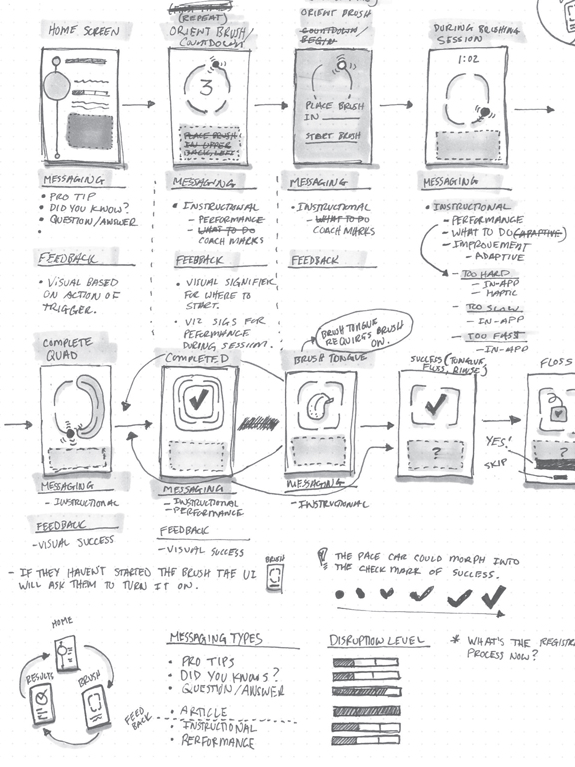 (REPEAT)
ORIENT BRUSH
HOME SCREEN
ORIENT BRUSH/
COUNTDOWN
COUNTDOWN/
BEGIN
DURING BRUSHING
SESSION
3
PLACE BRUSH
IN UPPER
BACK LEFT
PLACE BRUSH
IN
START BRUSH
1:02
MESSAGING
• PRO TIP
• DID YOU KNOW?
• QUESTION/ANSWER
•
FEEDBACK
• VISUAL BASED
ON ACTION OF
TRIGGER.
MESSAGING
• INSTRUCTIONAL
- PERFORMANCE
- WHAT TO DO
COACH MARKS
FEEDBACK
• VISUAL SIGNIFIER
FOR WHERE TO
START.
• VIZ SIGS FOR
PEFORMANCE
DURING SESSION.
MESSAGING
• INSTRUCTIONAL
- WHAT TO DO
COACH MARKS
FEEDBACK
MESSAGING
• INSTRUCTIONAL
- PERFORMANCE
- WHAT TO DO (ADAPTIVE)
- IMPROVEMENT
- ADAPTIVE
- TOO HARD
- IN-APP
- HAPTIC
- TOO SLOW
- IN-APP
- TOO FAST
- IN-APP
COMPLETE
QUAD
COMPLETED
BRUSH TONGUE
BRUSH TONGUE
REQUIRES BRUSH
ON.
SUCCESS (TONGUE,
FLOSS, RINSE)
FLOSS
?
?
YES!
SKIP
MESSAGING
- INSTRUCTIONAL
FEEDBACK
- VISUAL SUCCESS
MESSAGING
- INSTRUCTIONAL
- PERFORMANCE
FEEDBACK
- VISUAL SUCCESS
MESSAGING
- INSTRUCTIONAL
- IF THEY HAVEN'T STARTED THE BRUSH THE UI
WILL ASK THEM TO TURN IT ON.
BRUSH
! THE PACE CAR COULD MORPH INTO
THE CHECK MARK OF SUCCESS.
HOME
RESULTS
BRUSH
FEED
BACK
MESSAGING TYPES
• PRO TIPS
• DID YOU KNOWS?
• QUESTION/ANSWER
• ARTICLE
• INSTRUCTIONAL
• PERFORMANCE
DISRUPTION LEVEL
* WHAT'S THE REGISTR
PROCESS NOW?